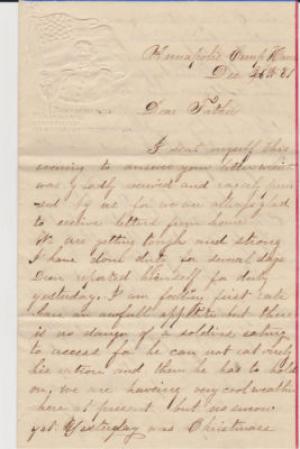 Annapolis Camp
Dec 26th 61
Dear Father
I seat myself this
evening to answer your letter which
was gladly received and
by us for we are always glad
to receive letters from home
We are getting tough and strong
I have done duty for several days
reported himself for duty
yesterday. I am feeling first rate
have an awfull appetite but there
is no danger of a soldier eating
to access for he can not eat only
his ration and then he has to hold
on, we are having very cool weather
here at present but no snow
yet Yesterday was Christmase